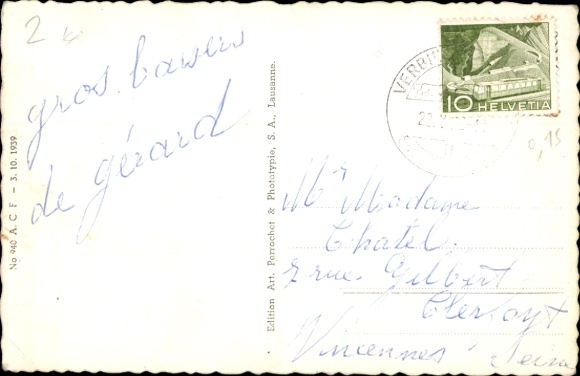 2
gros baisers
de gérard
No 940 A. C. F. — 3. 10. 1939
Edition Art. Perrochet & Phototypie, S. A., Lausanne.
10 HELVETIA
0,15
Mr Madame
Chatel
rue Gilbert
Vincennes Seine